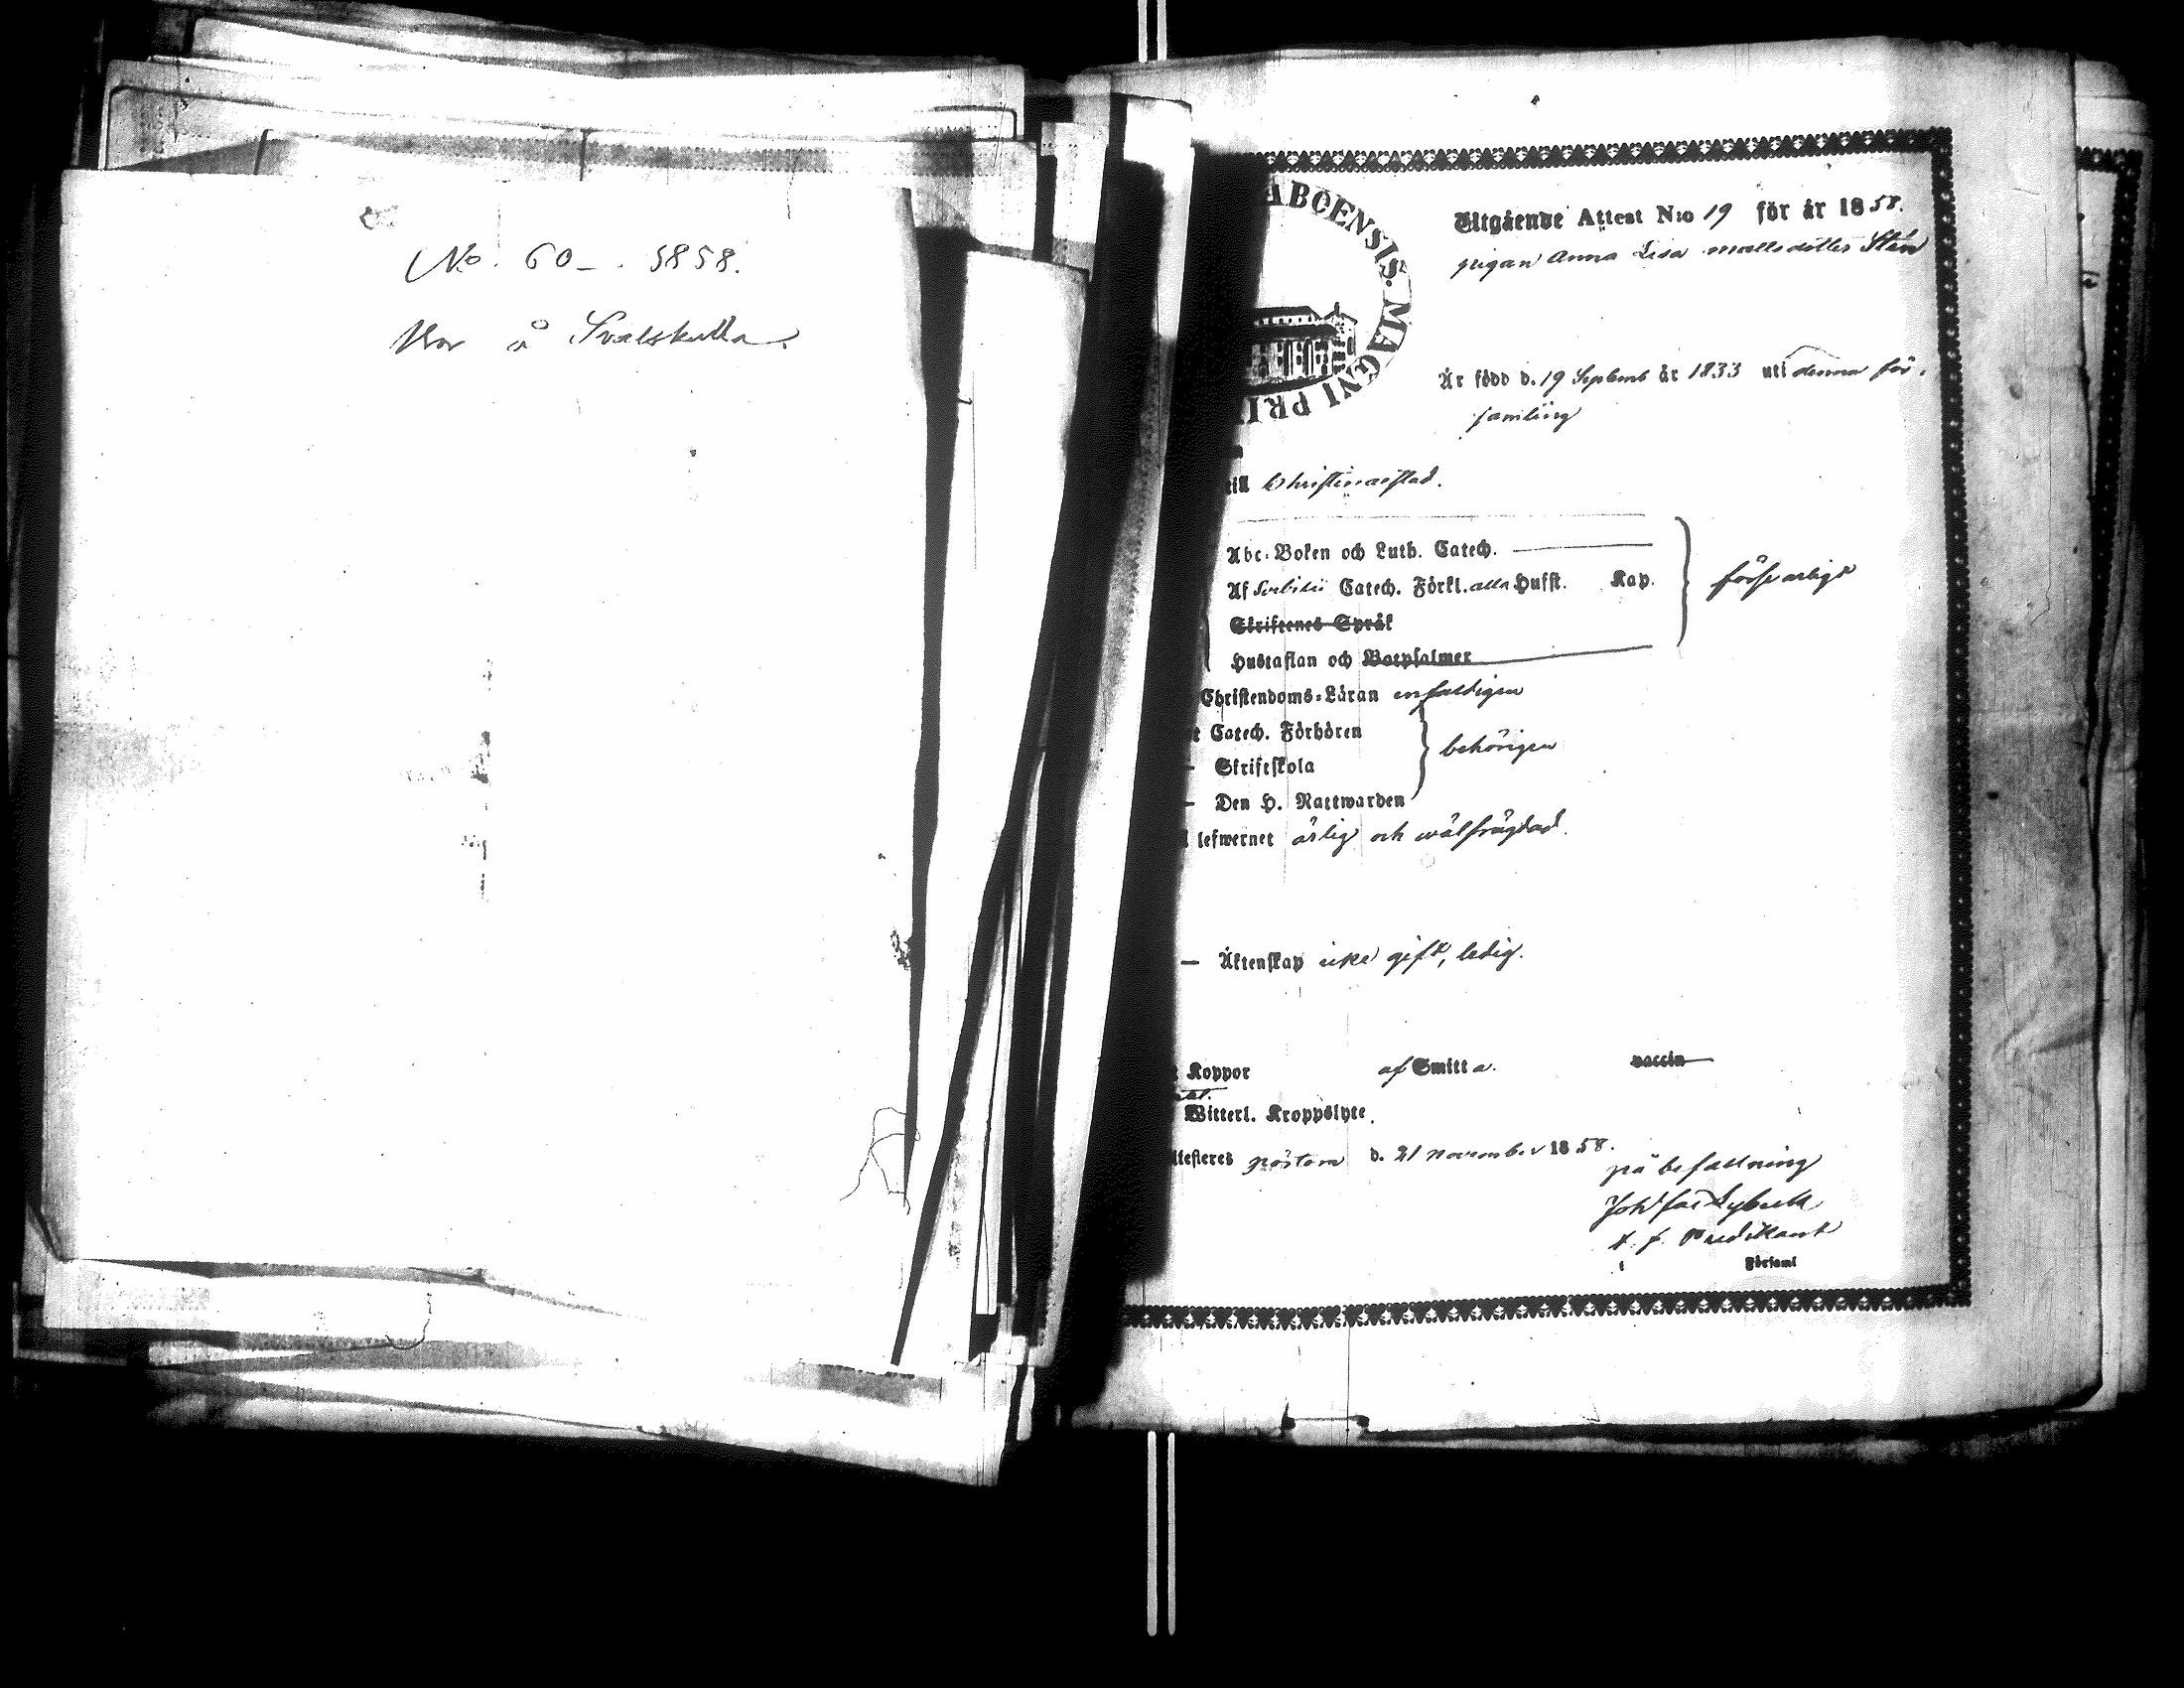 No. 60 _ . 1858.
Bor å Svalskulla.
ABOENSIS. MAGNI PRI
Utgående Attest N:o 19 för år 1858.
pigan Anna Lisa Mattsdotter Stén
Är född d. 19 Septemb år 1833 uti denna för-
samling
till Christinæstad.
Abc-Boken och Luth. Catech.
Af Svebilii Catech. Förkl. alla Husst. Kap.
försvarligt
Skriftenes Språk
Hustaflan och Botpsalmer
Christendoms-Läran enfaldigen
Catech. Förhören
behörigen
— Skriftskola
— Den H. Nattwarden
lefwernet ärlig och wälfrägdad.
— Äktenskap icke gift, ledig.
Koppor af Smitta. vaccin
Witterl. Kroppslyte.
Attesteras d. 21 November 1858.
på befallning
Joh
Predikant
i Församl